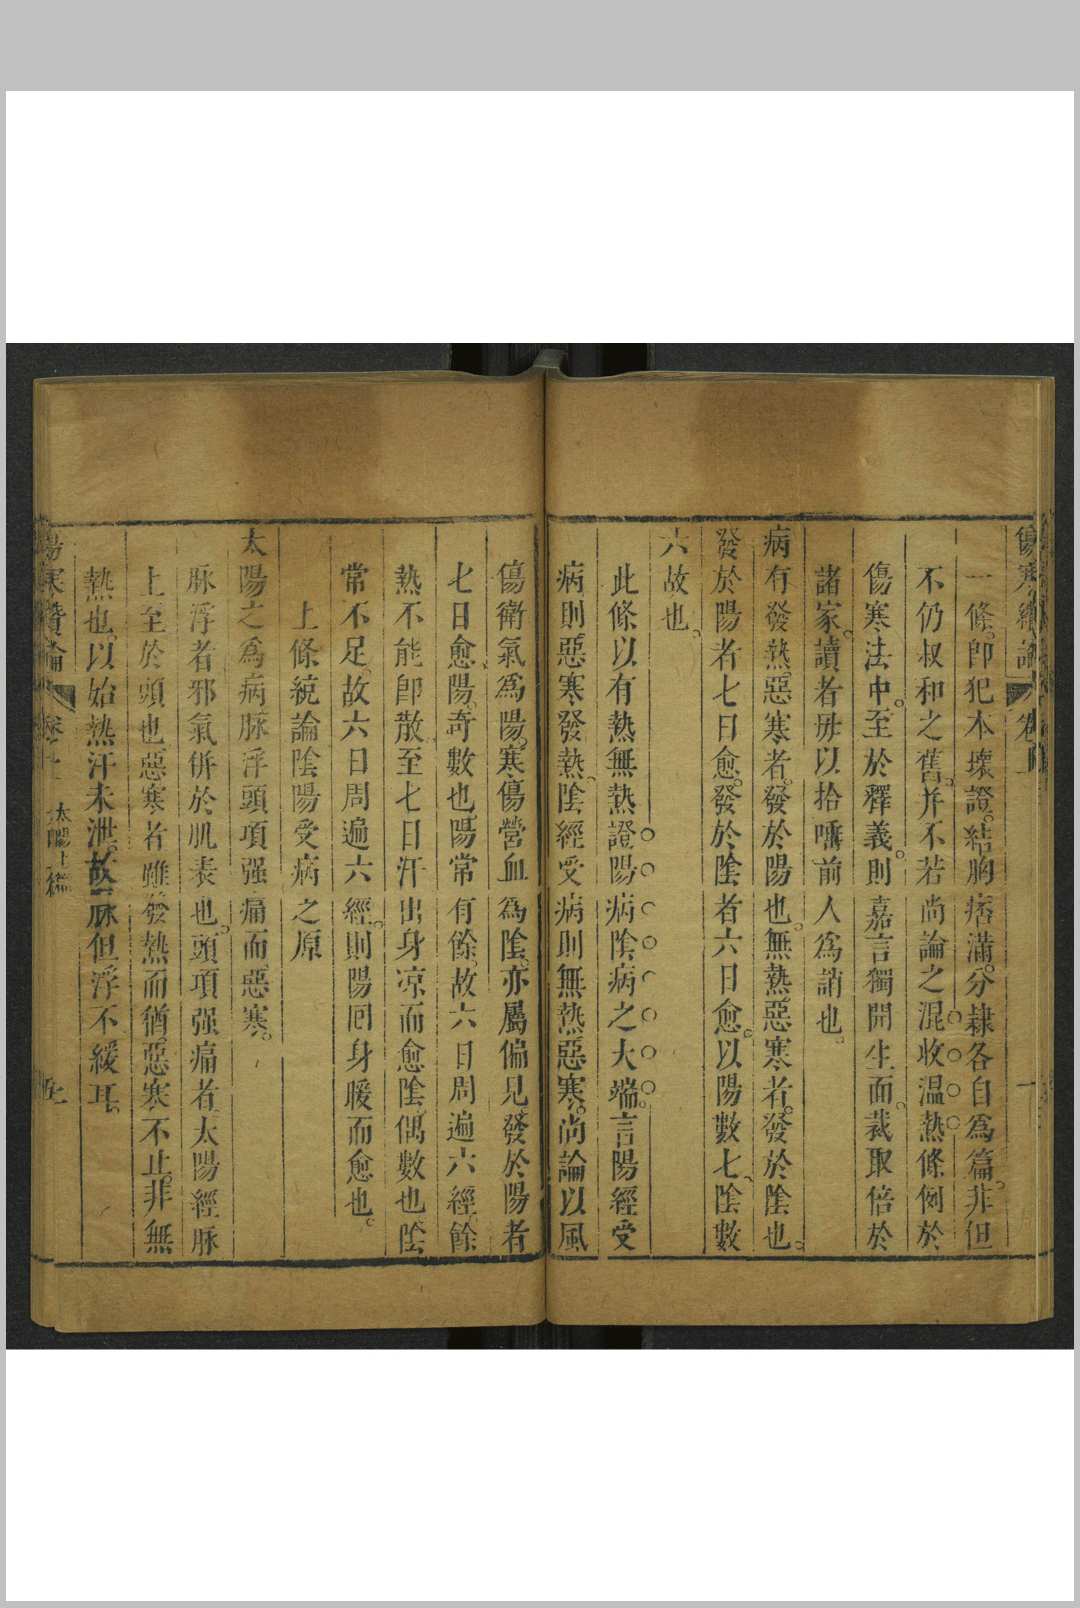 傷寒纘論　卷上
一條。卽犯本壞證。結胸痞滿。分隷各自爲篇。非但
不仍叔和之舊。并不若尚論之混收温熱條例於
傷寒法中。至於釋義。則嘉言獨開生面。裁取倍於
諸家。讀者毋以拾唾前人爲誚也。
病有發熱。惡寒者。發於陽也。無熱惡寒者。發於陰也。
發於陽者七日愈。發於陰者六日愈。以陽數七。陰數
六故也。
此條以有熱無熱證陽病陰病之大端。言陽經受
病則惡寒發熱。陰經受病則無熱惡寒。尚論以風
傷衛氣爲陽。寒傷營血爲陰。亦屬偏見。發於陽者
七日愈。陽奇數也。陽常有餘。故六日周遍六經。餘
熱不能卽散。至七日汗出身凉而愈。陰偶數也。陰
常不足。故六日周遍六經。則陽囘身暖而愈也。
上條統論陰陽受病之原
太陽之爲病。脉浮頭項强痛而惡寒。
脉浮者邪氣併於肌表也。頭項强痛者太陽經脉
上至於頭也。惡寒者雖發熱而猶惡寒不止。非無
熱也。以始熱汗未泄。故脉但浮不緩耳。
傷寒纘論　太陽上篇